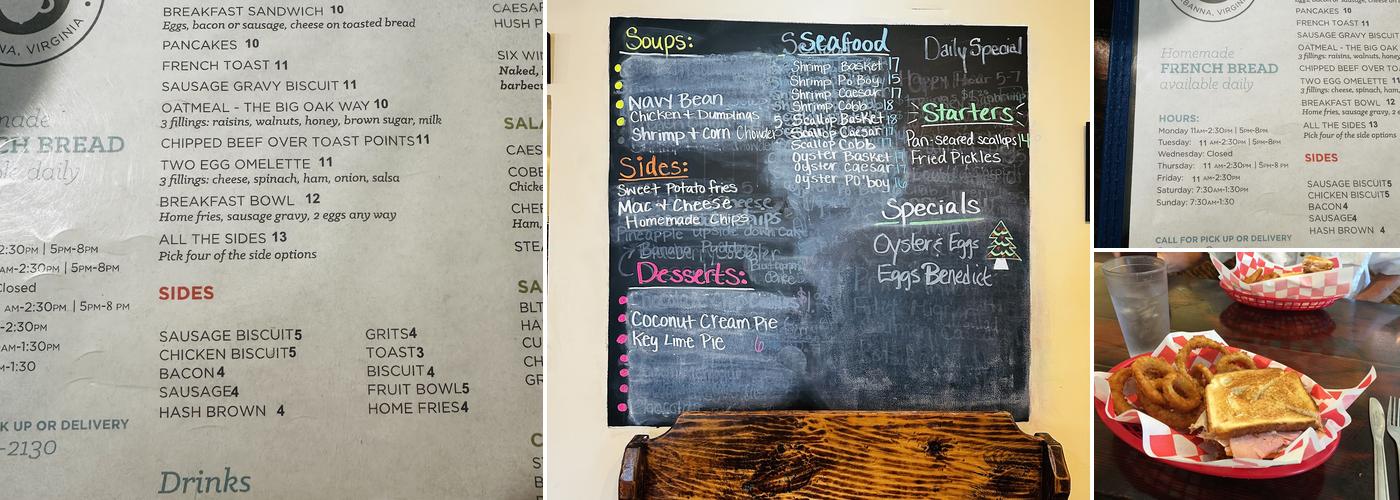 NA, VIRGINIA
made
CH BREAD
daily
2:30PM | 5PM-8PM
AM-2:30PM | 5PM-8PM
losed
AM-2:30PM | 5PM-8 PM
-2:30PM
AM-1:30PM
M-1:30
K UP OR DELIVERY
-2130
BREAKFAST SANDWICH 10
Eggs, bacon or sausage, cheese on toasted bread
PANCAKES 10
FRENCH TOAST 11
SAUSAGE GRAVY BISCUIT 11
OATMEAL - THE BIG OAK WAY 10
3 fillings: raisins, walnuts, honey, brown sugar, milk
CHIPPED BEEF OVER TOAST POINTS 11
TWO EGG OMELETTE 11
3 fillings: cheese, spinach, ham, onion, salsa
BREAKFAST BOWL 12
Home fries, sausage gravy, 2 eggs any way
ALL THE SIDES 13
Pick four of the side options
SIDES
SAUSAGE BISCUIT5
CHICKEN BISCUIT5
BACON4
SAUSAGE4
HASH BROWN 4
GRITS4
TOAST3
BISCUIT 4
FRUIT BOWL5
HOME FRIES4
Drinks
CAESA
HUSH P
SIX WI
Naked,
barbec
SALA
CAES
COBE
Chicke
CHEF
Ham,
STEA
SA
BLT
HA
CU
CH
GR
Soups:
Navy Bean
Chicken + Dumplings
Shrimp + Corn Chowder
Sides:
Sweet Potato fries
Mac + Cheese
Homemade Chips
Pineapple upside down cake
Banana Pudding
Desserts:
Coconut Cream Pie
Key Lime Pie 6
Seafood
Shrimp Basket 17
Shrimp Po'Boy 15
Shrimp Caesar 17
Shrimp Cobb 18
Scallop Basket 18
Scallop Caesar 17
Scallop Cobb
Oyster Basket 17
Oyster Caesar 17
Oyster Po'boy 16
Daily Special
Happy Hour 5-7
Starters
Pan-seared scallops 14
Fried Pickles
Specials
Oysters Eggs
Eggs Benedict
BANNA, VIRGINIA
Homemade
FRENCH BREAD
available daily
HOURS:
Monday 11AM-2:30PM | 5PM-8PM
Tuesday: 11 AM-2:30PM | 5PM-8PM
Wednesday: Closed
Thursday: 11 AM-2:30PM | 5PM-8 PM
Friday: 11 AM-2:30PM
Saturday: 7:30AM-1:30PM
Sunday: 7:30AM-1:30
CALL FOR PICK UP OR DELIVERY
PANCAKES 10
FRENCH TOAST 11
SAUSAGE GRAVY BISCUIT
OATMEAL - THE BIG OA
3 fillings: raisins, walnuts,
CHIPPED BEEF OVER TO
TWO EGG OMELETTE 11
3 fillings: cheese, spinach, ham,
BREAKFAST BOWL 12
Home fries, sausage gravy,
ALL THE SIDES 13
Pick four of the side options
SIDES
SAUSAGE BISCUIT5
CHICKEN BISCUIT5
BACON4
SAUSAGE4
HASH BROWN 4